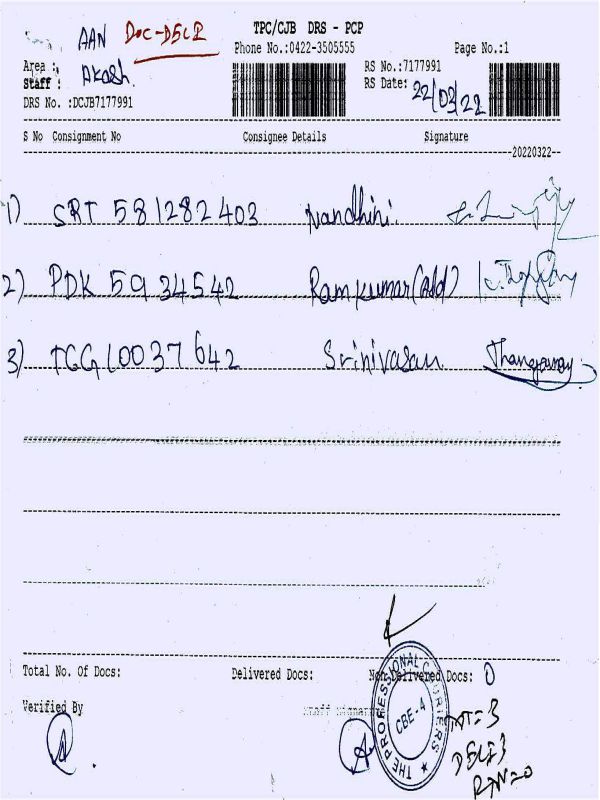 TPC/CJB DRS - PCP
AAN DOC-DSLR
Phone No.:0422-3505555 Page No.:1
Area :
Staff : Akash.
RS No.:7177991
RS Date: 22/03/22
DRS No. :DCJB7177991
S No Consignment No Consignee Details Signature
20220322
1) SRT 581282403 Nandhini.
2) PDK 5934542 Ramkumar (Add)
3) TGG10037642 Srinivasan Thangasamy
Total No. Of Docs: Delivered Docs: Non Delivered Docs: 0
Verified By Staff Signature
THE PROFESSIONAL COURIERS
CBE-4
TNT=3
DSL=3
RTN=0